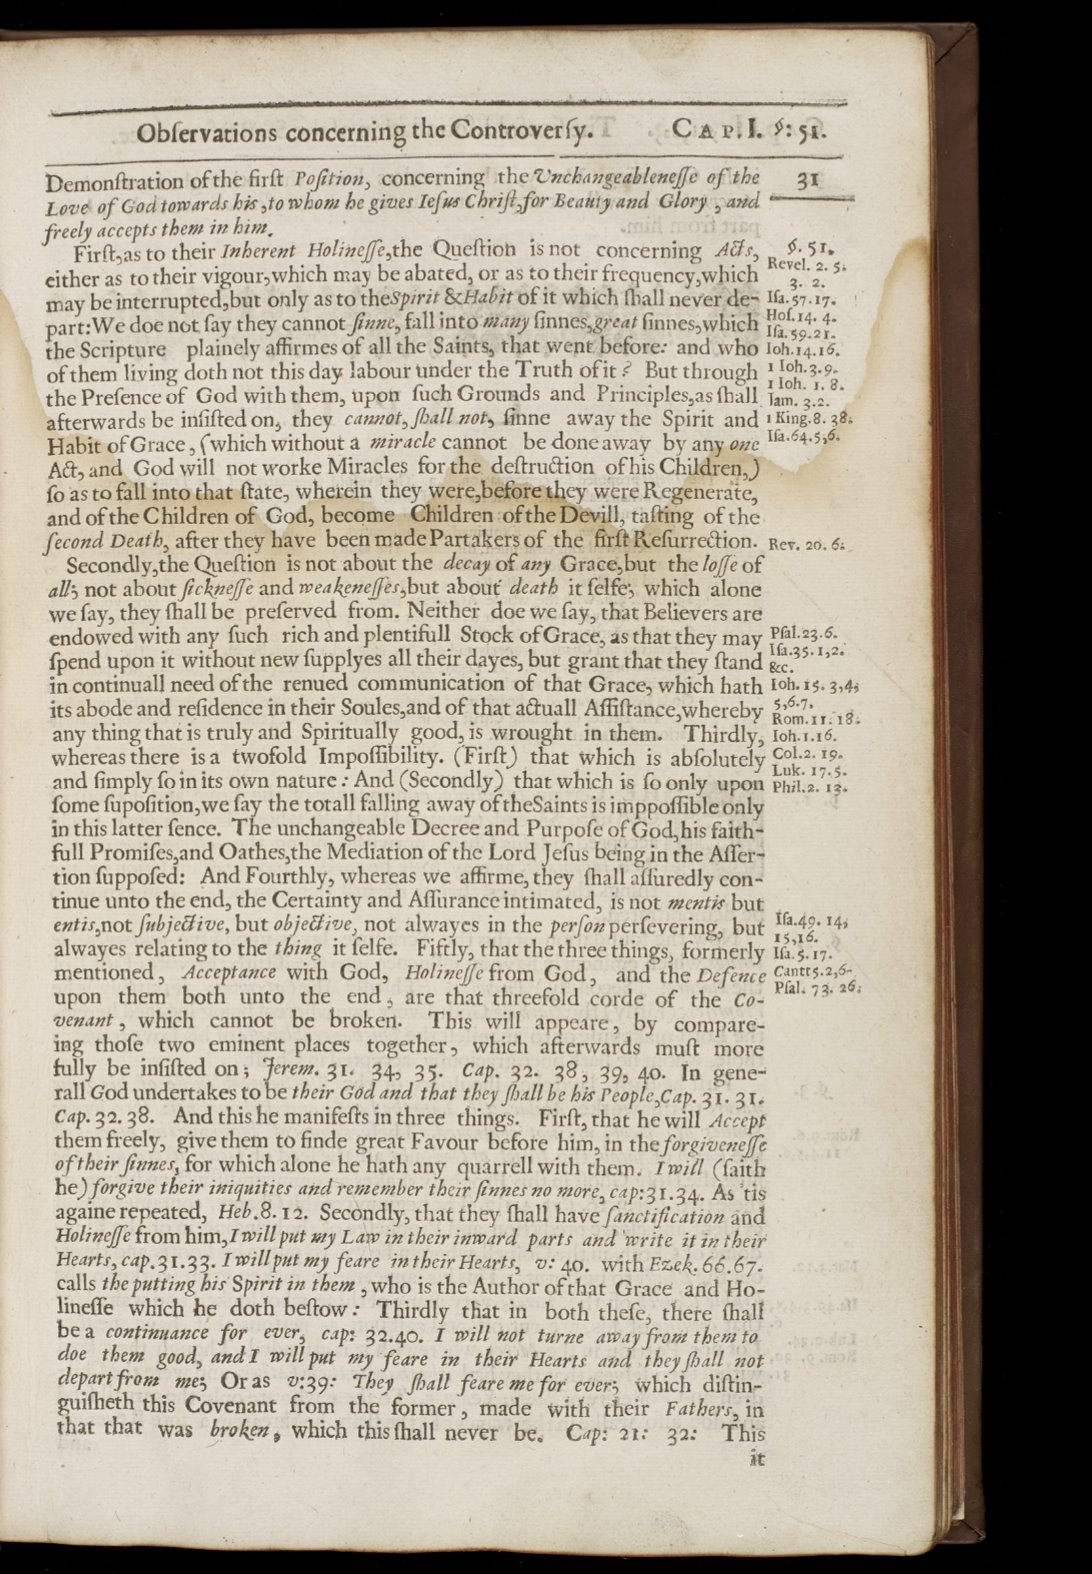 Obſervations concerning the Controverſy. CAP. I. §: 51.
31
Demonſtration of the firſt Poſition, concerning the Vnchangeableneſſe of the
Love of God towards his, to whom he gives Ieſus Chriſt, for Beauty and Glory, and
freely accepts them in him.
Firſt, as to their Inherent Holineſſe, the Queſtion is not concerning Acts,
either as to their vigour, which may be abated, or as to their frequency, which
may be interrupted, but only as to the Spirit & Habit of it which ſhall never de-
part: We doe not ſay they cannot ſinne, fall into many ſinnes, great ſinnes, which
the Scripture plainely affirmes of all the Saints, that went before: and who
of them living doth not this day labour under the Truth of it? But through
the Preſence of God with them, upon ſuch Grounds and Principles, as ſhall
afterwards be inſiſted on, they cannot, ſhall not, ſinne away the Spirit and
Habit of Grace, (which without a miracle cannot be done away by any one
Act, and God will not worke Miracles for the deſtruction of his Children,)
ſo as to fall into that ſtate, wherein they were, before they were Regenerate,
and of the Children of God, become Children of the Devill, taſting of the
ſecond Death, after they have been made Partakers of the firſt Reſurrection.
Secondly, the Queſtion is not about the decay of any Grace, but the loſſe of
all; not about ſickneſſe and weakeneſſes, but about death it ſelfe; which alone
we ſay, they ſhall be preſerved from. Neither doe we ſay, that Believers are
endowed with any ſuch rich and plentifull Stock of Grace, as that they may
ſpend upon it without new ſupplyes all their dayes, but grant that they ſtand
in continuall need of the renued communication of that Grace, which hath
its abode and reſidence in their Soules, and of that actuall Aſſiſtance, whereby
any thing that is truly and Spiritually good, is wrought in them. Thirdly,
whereas there is a twofold Impoſſibility. (Firſt) that which is abſolutely
and ſimply ſo in its own nature: And (Secondly) that which is ſo only upon
ſome ſupoſition, we ſay the totall falling away of the Saints is imppoſſible only
in this latter ſence. The unchangeable Decree and Purpoſe of God, his faith-
full Promiſes, and Oathes, the Mediation of the Lord Jeſus being in the Aſſer-
tion ſuppoſed: And Fourthly, whereas we affirme, they ſhall aſſuredly con-
tinue unto the end, the Certainty and Aſſurance intimated, is not mentis but
entis, not ſubjective, but objective, not alwayes in the perſon perſevering, but
alwayes relating to the thing it ſelfe. Fiftly, that the three things, formerly
mentioned, Acceptance with God, Holineſſe from God, and the Defence
upon them both unto the end, are that threefold corde of the Co-
venant, which cannot be broken. This will appeare, by compare-
ing thoſe two eminent places together, which afterwards muſt more
fully be inſiſted on; Jerem. 31. 34, 35. Cap. 32. 38, 39, 40. In gene-
rall God undertakes to be their God and that they ſhall be his People, Cap. 31. 31.
Cap. 32. 38. And this he manifeſts in three things. Firſt, that he will Accept
them freely, give them to finde great Favour before him, in the forgiveneſſe
of their ſinnes, for which alone he hath any quarrell with them. I will (ſaith
he) forgive their iniquities and remember their ſinnes no more, cap: 31. 34. As 'tis
againe repeated, Heb. 8. 12. Secondly, that they ſhall have ſanctification and
Holineſſe from him, I will put my Law in their inward parts and write it in their
Hearts, cap. 31. 33. I will put my feare in their Hearts, v: 40. with Ezek. 66. 67.
calls the putting his Spirit in them, who is the Author of that Grace and Ho-
lineſſe which he doth beſtow: Thirdly that in both theſe, there ſhall
be a continuance for ever, cap: 32. 40. I will not turne away from them to
doe them good, and I will put my feare in their Hearts and they ſhall not
depart from me; Or as v: 39: They ſhall feare me for ever; which diſtin-
guiſheth this Covenant from the former, made with their Fathers, in
that that was broken, which this ſhall never be. Cap: 21: 32: This
it
§. 51.
Revel. 2. 5.
3. 2.
Iſa. 57. 17.
Hoſ. 14. 4.
Iſa. 59. 21.
Ioh. 14. 16.
1 Ioh. 3. 9.
1 Ioh. 1. 8.
Iam. 3. 2.
1 King. 8. 38.
Iſa. 64. 5, 6.
Rev. 20. 6.
Pſal. 23. 6.
Iſa. 35. 1, 2.
&c.
Ioh. 15. 3, 4,
5, 6. 7.
Rom. 11. 18.
Ioh. 1. 16.
Col. 2. 19.
Luk. 17. 5.
Phil. 2. 13.
Iſa. 49. 14,
15, 16.
Iſa. 5. 17.
Cantt 5. 2, 6.
Pſal. 73. 26.